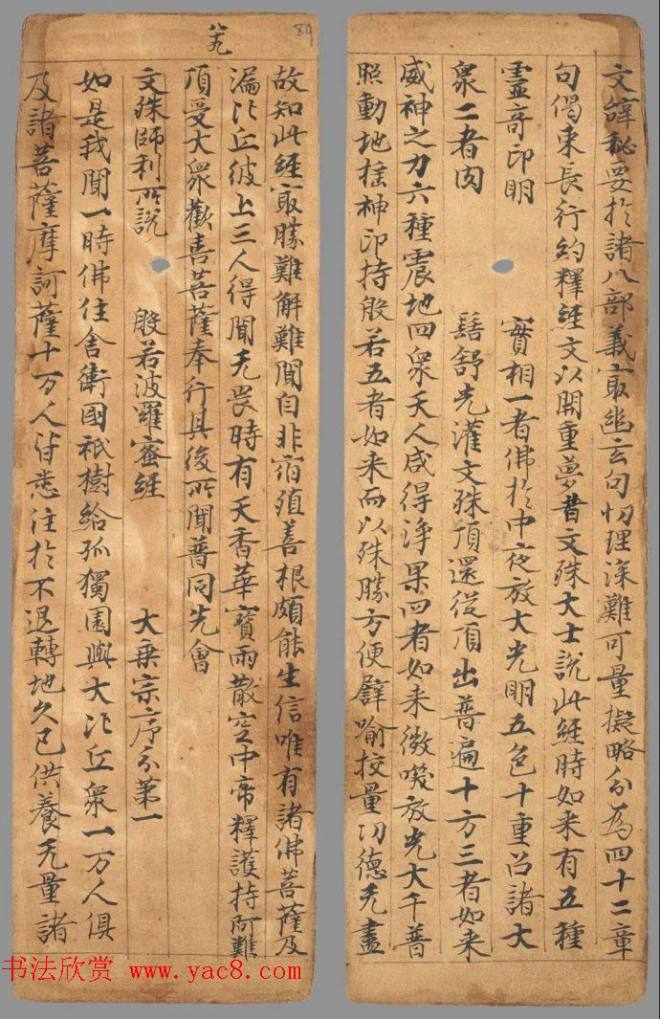 文辞秘要於諸八部義寂幽玄句切理深難可量擬略分為四十二章
句偈束長行約釋經文以開重夢昔文殊大士說此經時如来有五種
靈奇印明 實相一者佛於中夜放大光明五色十重召諸大
衆二者肉髻舒光灌文殊頂還從頂出普遍十方三者如来
威神之力六種震地四衆天人咸得淨果四者如来微𠸪放光大千普
照動地揺神印持般若五者如来而以殊勝方便譬喻挍量功德无盡
八十九
89
故知此經寂勝難解難聞自非宿殖善根頗能生信唯有諸佛菩薩及
漏比丘彼上三人得聞无畏時有天香華寶雨散空中帝釋護持阿難
頂受大衆歡喜菩薩奉行具後所聞普同先會
文殊師利所說 般若波羅蜜經 大乗宗序分第一
如是我聞一時佛住舎衛國祇樹給孤獨園與大比丘衆一万人俱
及諸菩薩摩訶薩十万人皆悉住於不退轉地久已供養无量諸
书法欣赏 www.yac8.com